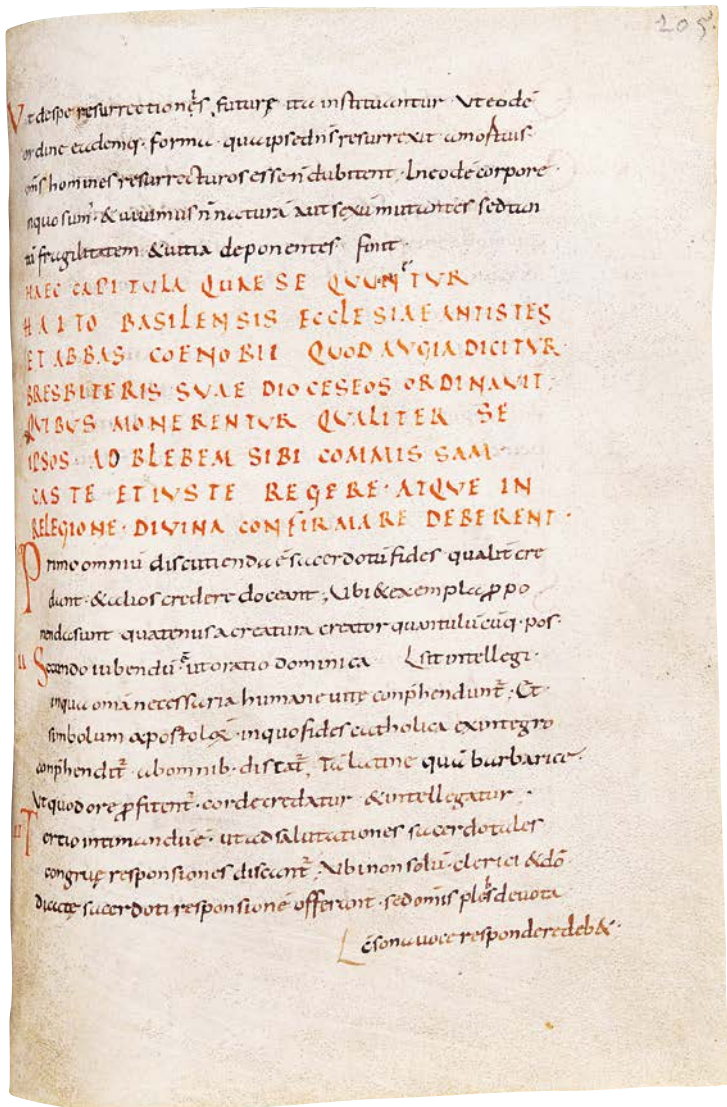 205.
Ut despe resurrectionis future ita instituantur Uteodē
ordine eademq; forma qua ipse dn̄s resurrexit amortuis
om̄s homines resurrecturos esse n̄ dubitent. Ineodē corpore
inquo sum; & uiuimus n̄ naturā aut sexū mutantes sed tan
tū fragilitatem & uitia deponentes finit
HAEC CAPITULA QUAE SE QUUNTUR
HAITO BASILENSIS ECCLESIAE ANTISTES
ET ABBAS COENOBII QUOD AVGIA DICITVR
BRESBITERIS SVAE DIOCESEOS ORDINAVIT,
QVIBVS MONERENTVR QVALITER SE
IPSOS AD BLEBEM SIBI COMMISSAM
CASTE ET IVSTE REGERE ATQVE IN
RELEGIONE DIVINA CONFIRMARE DEBERENT
Primo omniū discutienda ē sacerdotū fides qualit̄ cre
dant & alios credere doceant; Ubi & exempla ꝓ po
nenda sunt quatenus a creatura creator quantulū cūq; pos
II Secundo iubendū ut oratio dominica Lsit intellegi
inqua omīa necessaria humane uite conp̄hendunt̄; Et
simbolum apostoloꝝ inquo fides catholica exintegro
conp̄hendit̄ abomnib; discat̄, Tā latine quā barbarice.
Ut quod ore ꝓfitent̄ corde credatur & intellegatur
III Tertio intimandū ē ut ad salutationes sacerdotales
congruę responsiones discant̄; Ubi non solū clerici & dō
dicatę sacerdoti responsionē offerant sed omīs plebs deuota
Lcōsona uoce respondere deb&